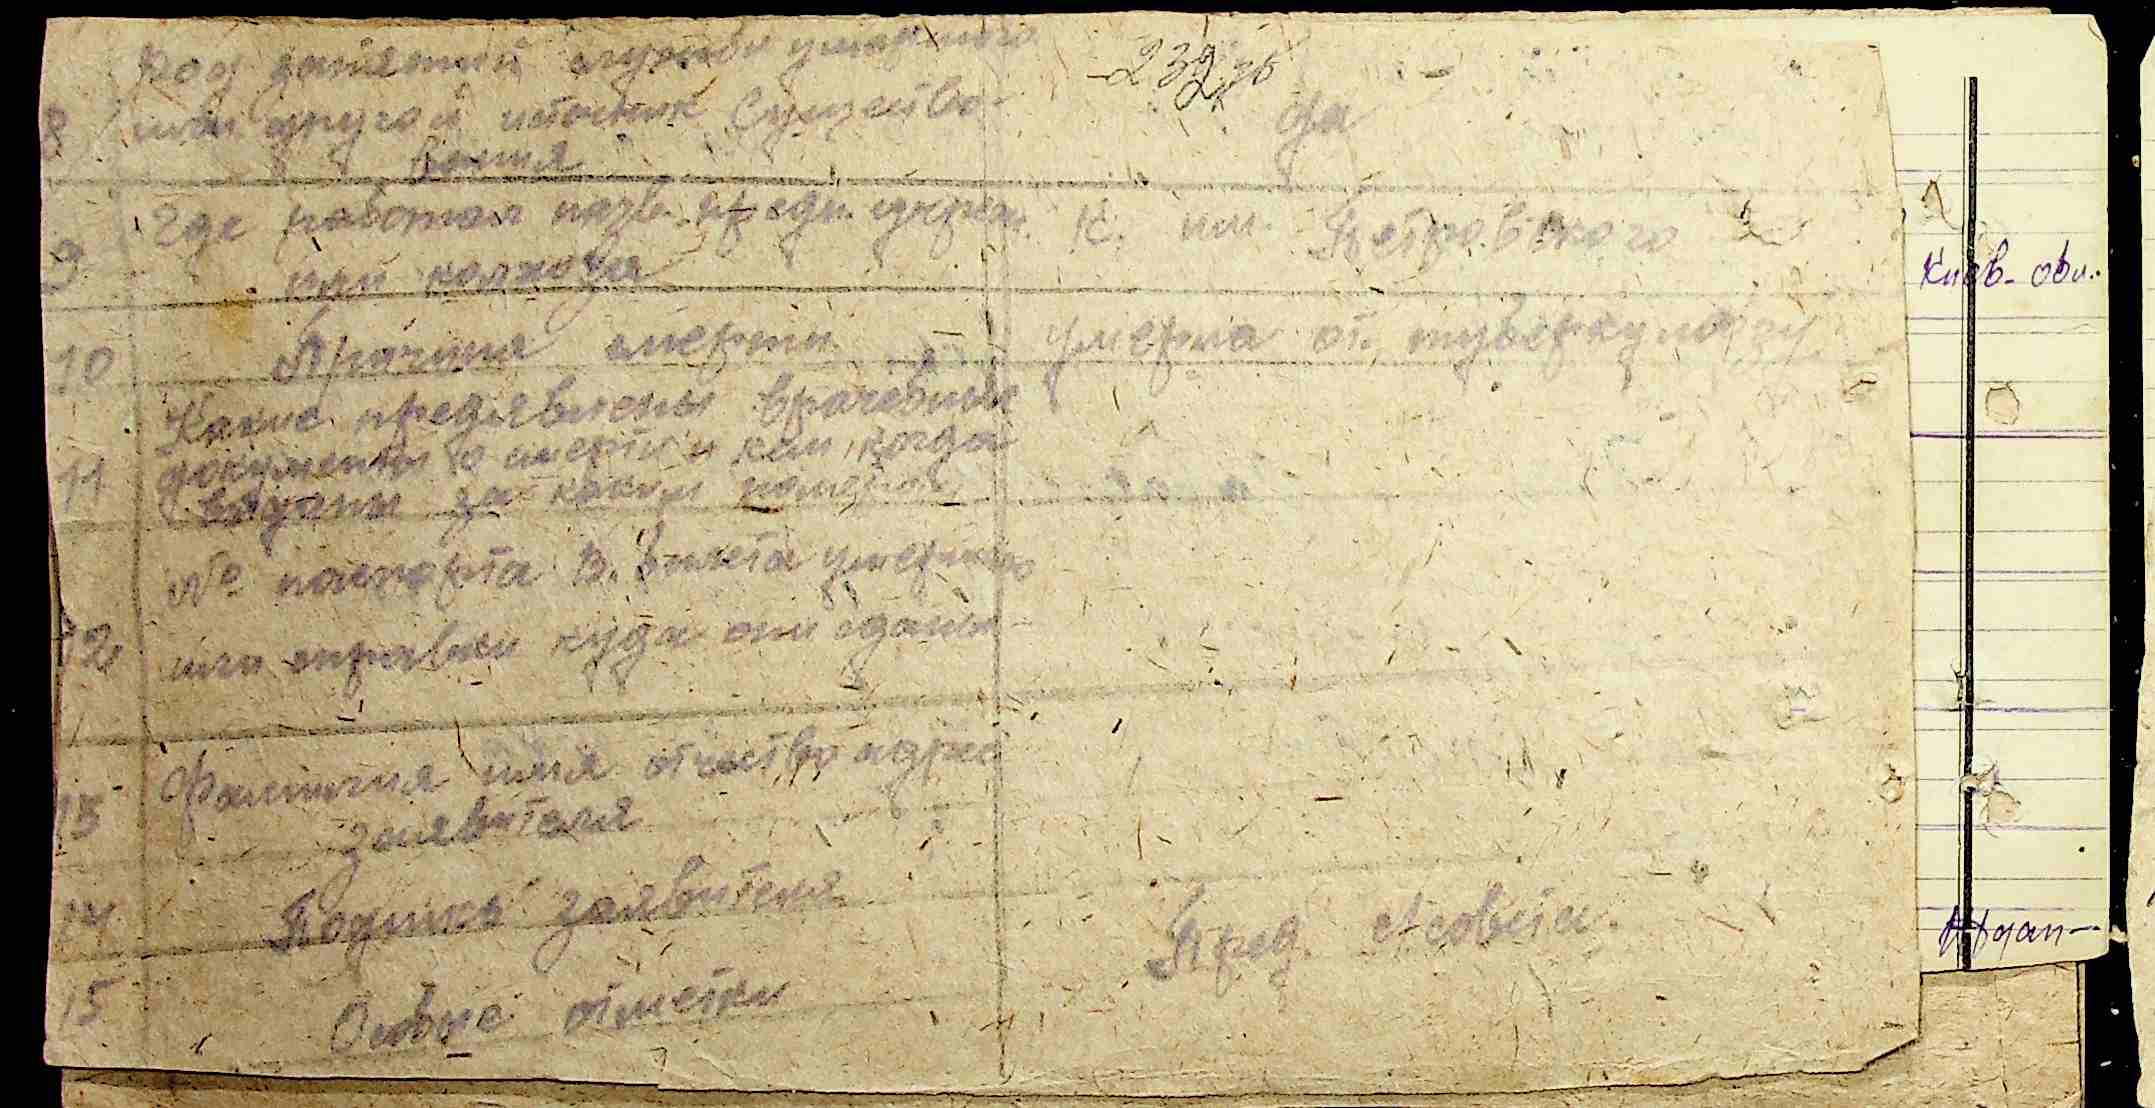 239 зв
8 Род занятий службы умершего
или другой источник существо-
вания
да
9 Где работал назв. предп. учреж.
или колхоза
К. им. Петровского
10 Причина смерти
умерла от туберкулозу
11 Какие предявлены врачебные
документы о смерти и кем, когда
выданы за каким номером
12 № паспорта В. билета умершего
или справки куда они сданы-
13 Фамилия имя отчество адрес
заявителя
14 Подпись заявителя
Пред. с/совета.
15 Особые отметки
Киев- обл.